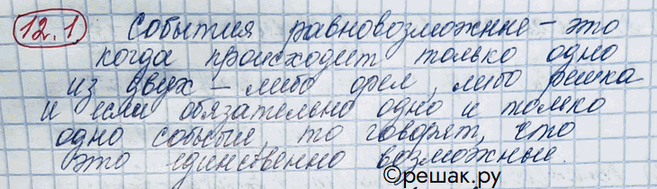 12.1 События равновозможные – это
когда происходит только одно
из двух – либо орел, либо решка
и если обязательно одно и только
одно событие то говорят, что
это единственно возможные.
©решак.ру